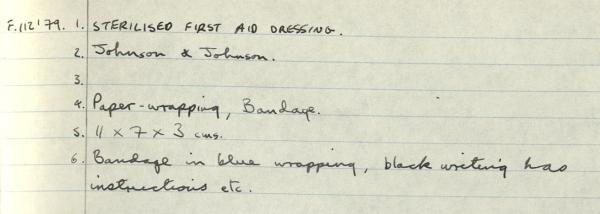 F.112'79. 1. STERILISED FIRST AID DRESSING.
2. Johnson & Johnson.
3.
4. Paper-wrapping, Bandage.
5. 11 x 7 x 3 cms.
6. Bandage in blue wrapping, black writing has
instructions etc.